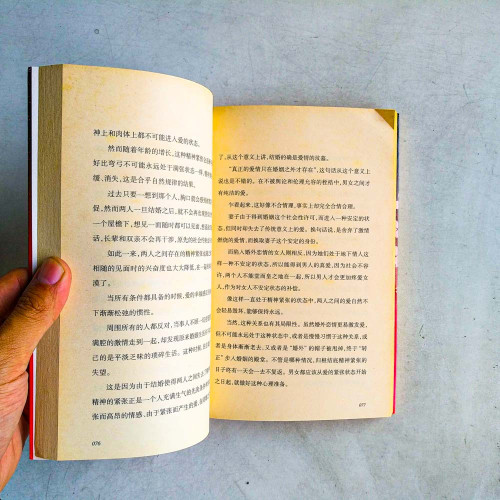 神上和肉体上都不可能进入爱的状态。
然而随着年龄的增长，这种精神紧张
好比弯弓不可能永远处于满张状态一样，
缓、消失，这是合乎自然规律的结果。
过去只要一想到那个人，胸口就会
促，然而两人一旦结婚之后，就不会再
一个屋檐下，想见面的时候随时可以见面，
话，长辈和双亲不会再干涉，原先的社会
如此一来，两人之间存在的精神紧张
相随的见面时的兴奋度也大大降低，
漠了。
当所有条件都具备的时候，爱的
下渐渐松弛的惯性。
周围所有的人都反对，当事人不顾一切
满腔的激情走到一起，却发现原来
己的是平淡乏味的琐碎生活。
失望。
这是因为由于结婚使得两人之间
精神的紧张正是一个人充满生气的
张而高昂的情感，由于紧张而产生的
076
了，从这个意义上讲，结婚的确是爱情的坟墓。
“真正的爱情只在婚姻之外才存在”，这句话从这个意义上
说也是不错的。在不被舆论和伦理允容的桎梏中，男女之间才
有纯洁的爱。
乍看起来，这好像不合情理，事实上却完全合情合理。
妻子由于得到婚姻这个社会性许可，而进入一种安定的状
态，但同时却失去了传统意义上的爱。换句话说，是舍弃了激情
燃烧的爱情，而换取妻子这个安定的身份。
而陷入婚外恋情的女人刚相反，因为她们处于地下情人这
样一种不安定的状态，所以能得到男人的真爱，因为社会不容
许，两个人不能堂而皇之地在一起，所以男人才会更加疼爱女
人，作为对女人不安定状态的补偿。
像这样一直处于精神紧张的状态中，两人之间的爱自然不
会轻易毁坏，能够保持永远。
当然，这种关系也有其局限性。虽然婚外恋情更易激发爱，
但不可能永远处于这种状态中，或者是慢慢习惯于这种关系，或
者是身体渐渐老去，又或者是“婚外”的帽子被甩掉，终于“转
正”步入婚姻的殿堂。不管是哪种情况，归根结底精神紧张的
日子终有一天会一去不复返。男女都应该从爱的紧张状态开始
之日起，就做好这种心理准备。
077